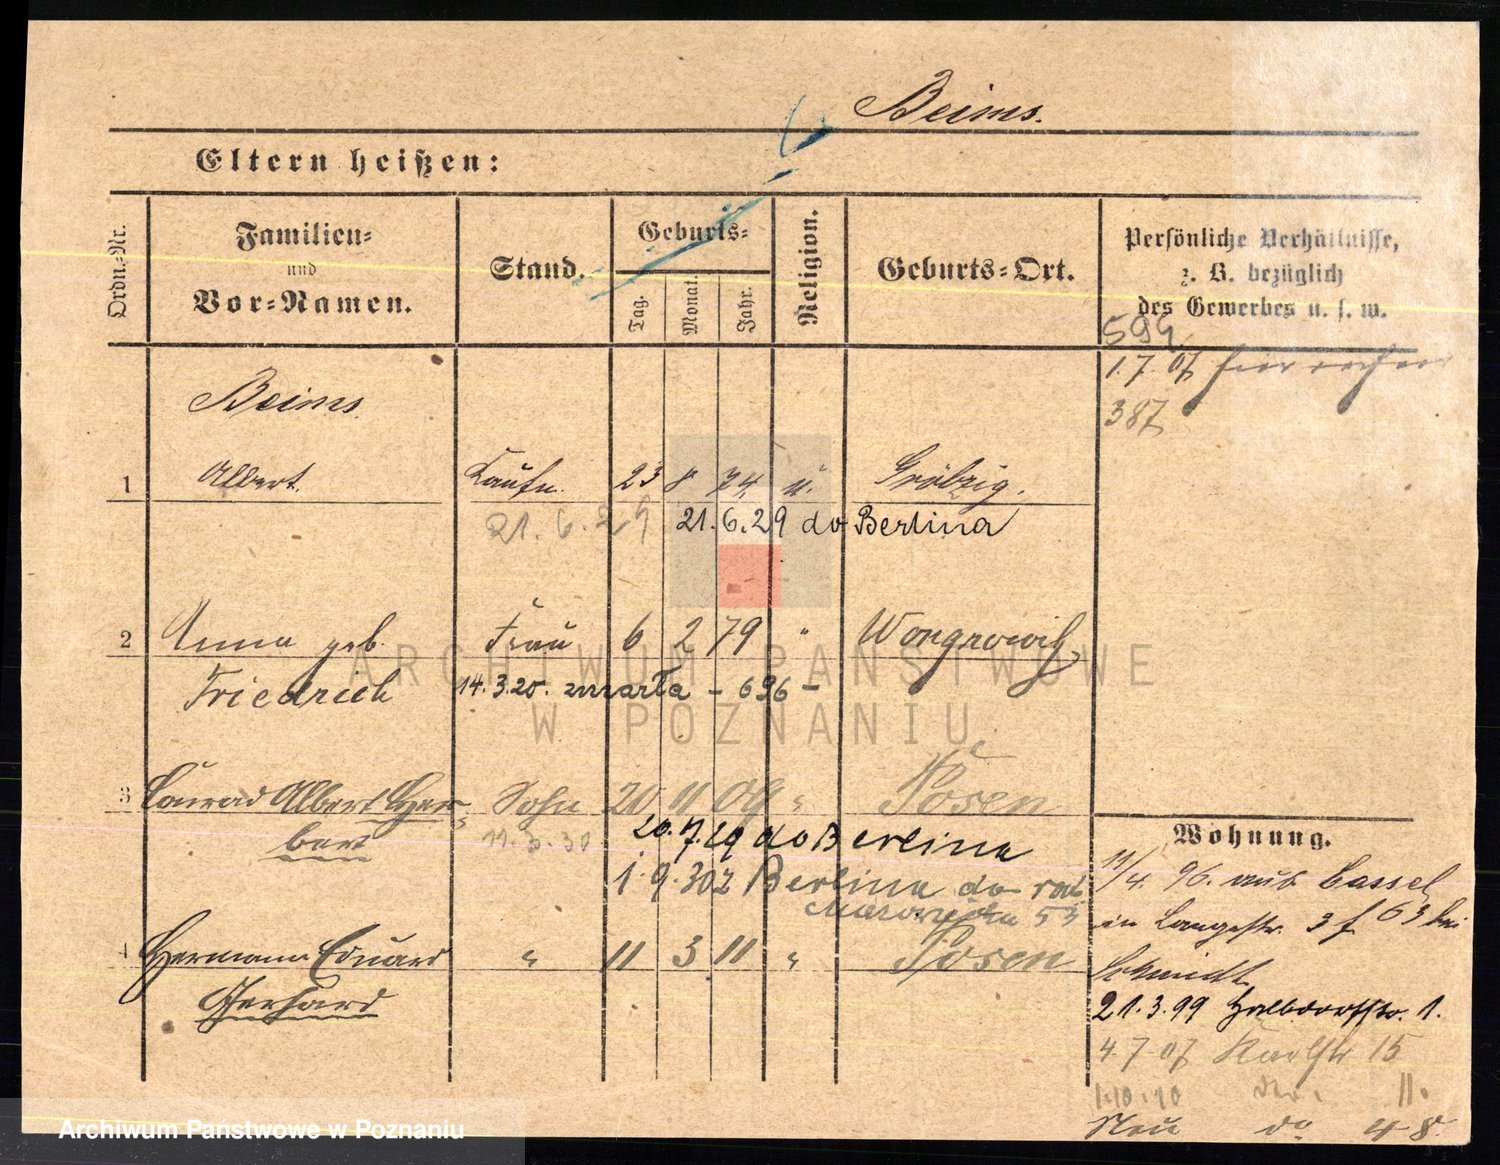 Beims.
Eltern heißen:
Ordn.-Nr.
Familien-
und
Vor-Namen.
Stand.
Geburts-
Tag.
Monat.
Jahr.
Religion.
Geburts-Ort.
Persönliche Verhältnisse,
z. B. bezüglich
des Gewerbes u. s. w.
594
1.7.07
387
Beims
1 Albert. Kaufm. 23 8 74 u. Gröbzig.
21.6.29 21.6.29 do Berlina
2 Anna geb. Frau 6 2 79 " Wongrowitz
Friedrich 14.3.20. zmarła - 696 -
3 Conrad Albert Her- Sohn 20 11 09 " Posen
bert 20.7.29 do Berlina
1.9.30 z Berlina do
53
4 Hermann Eduard " 11 3 11 " Posen
Gerhard
Wohnung.
11/4. 96. aus Cassel
in Langestr. 3 f 63 bei
Schmidt
21.3.99 Halbdorfstr. 1.
4.7.07 Karlstr 15
1.10.10 11.
Neu do 4 8.
ARCHIWUM PAŃSTWOWE
W POZNANIU
Archiwum Państwowe w Poznaniu